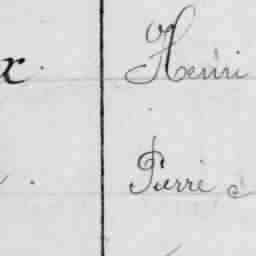 x. Henri
. Pierre